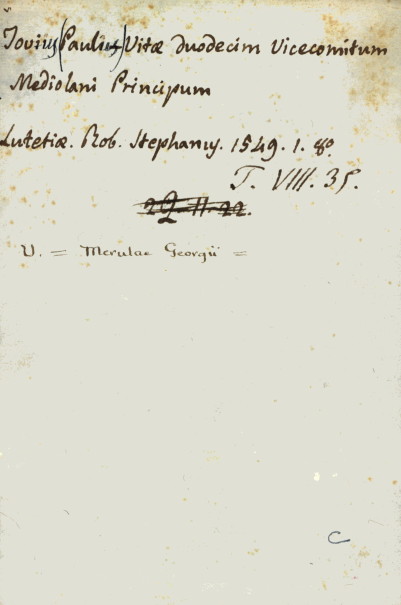 Jovius (Paulus) Vitæ duodecim Vicecomitum
Mediolani Principum
Lutetiæ. Rob. Stephanus. 1549. 1. 8º.
T. VIII. 35.
2Q-11-22.
V. = Merulae Georgii =
C